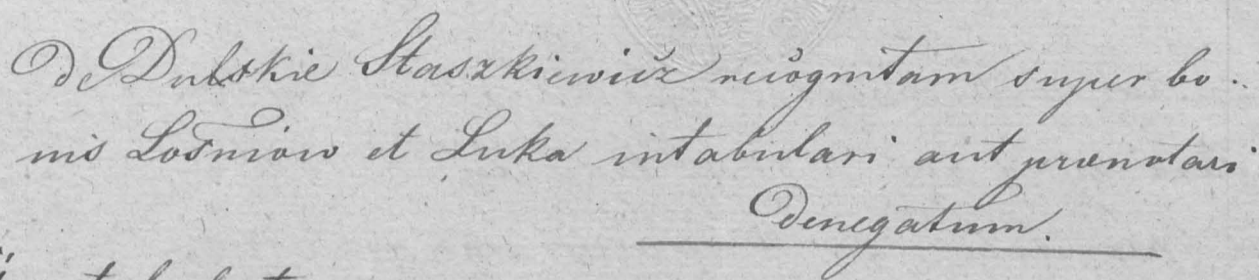 de Dulskie Staszkiewicz recognitam super bo-
nis Łośniow et Luka intabulari aut prænotari
Denegatum.